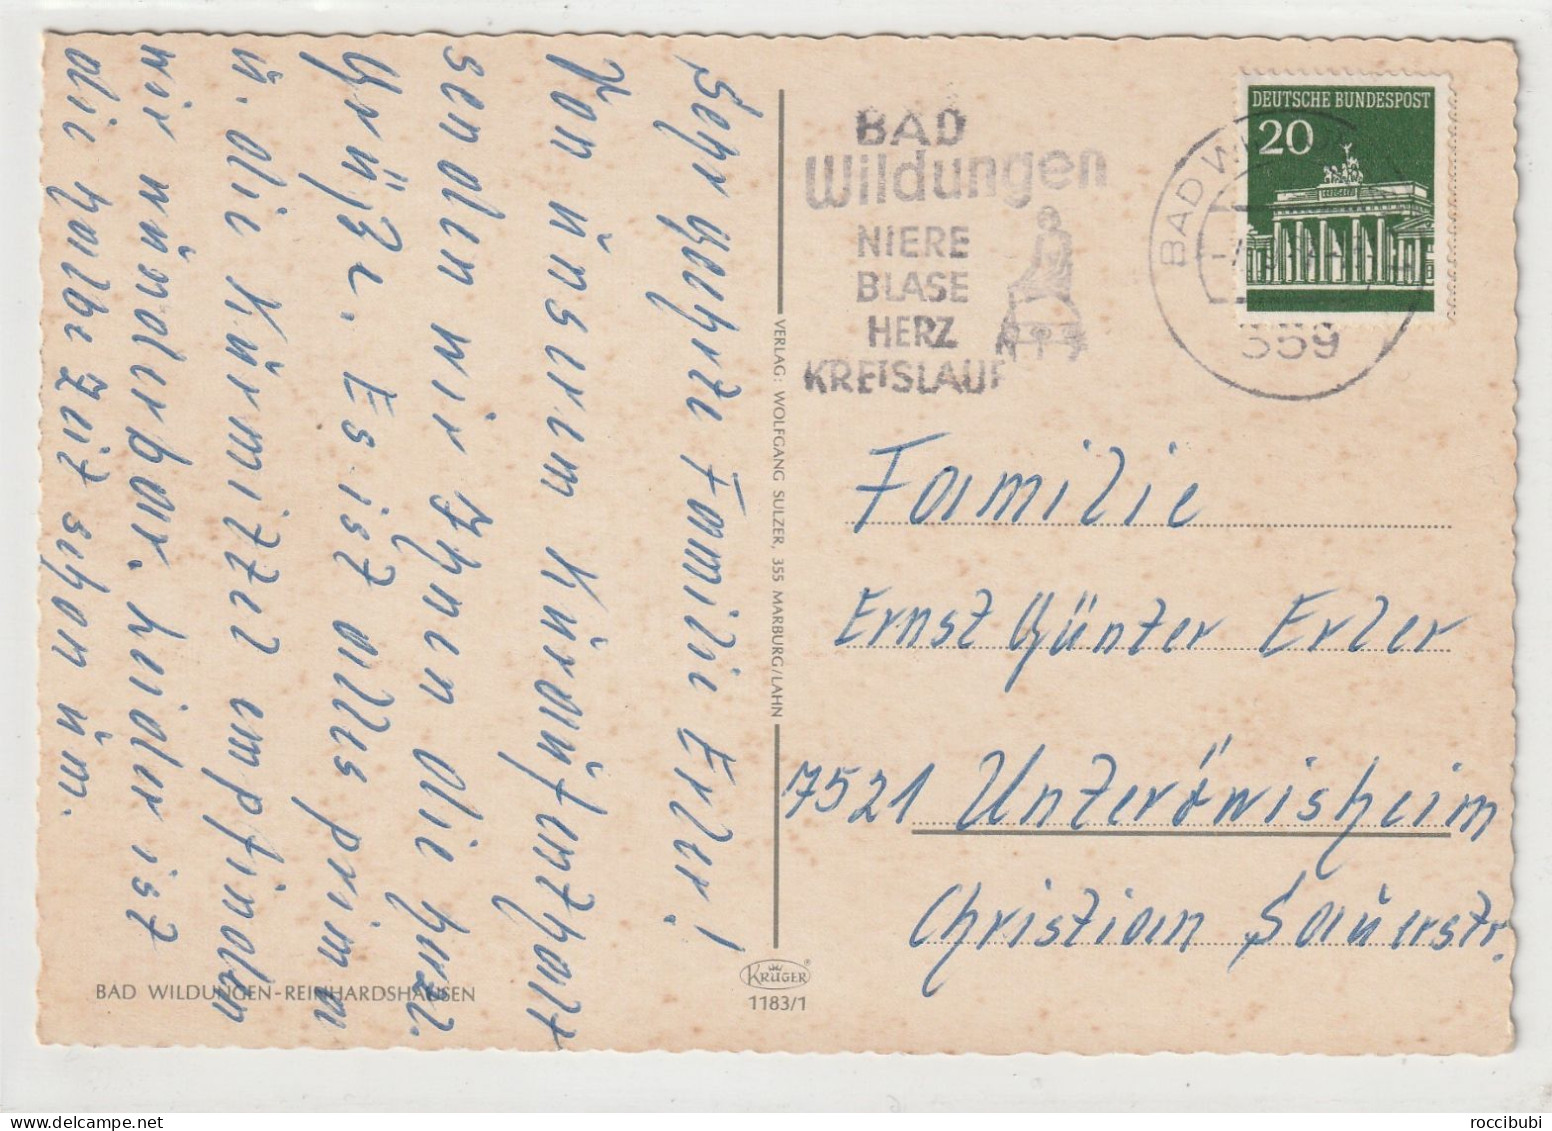 Sehr geehrte Familie Erler!
Von ünserem Küraüfenthalt
senden wir Ihnen die herzl.
Grüße. Es ist alles prima
ü. die Kürmittel empfinden
wir wünderbar. Leider ist
die halbe Zeit schon üm.
BAD WILDUNGEN-REINHARDSHAUSEN
VERLAG: WOLFGANG SULZER, 355 MARBURG/LAHN
KRÜGER
1183/1
BAD
Wildungen
NIERE
BLASE
HERZ
KREISLAUF
BAD WI
559
DEUTSCHE BUNDESPOST
20
Familie
Ernst Günter Erler
7521 Unteröwisheim
Christian Saüerstr.
roccibubi